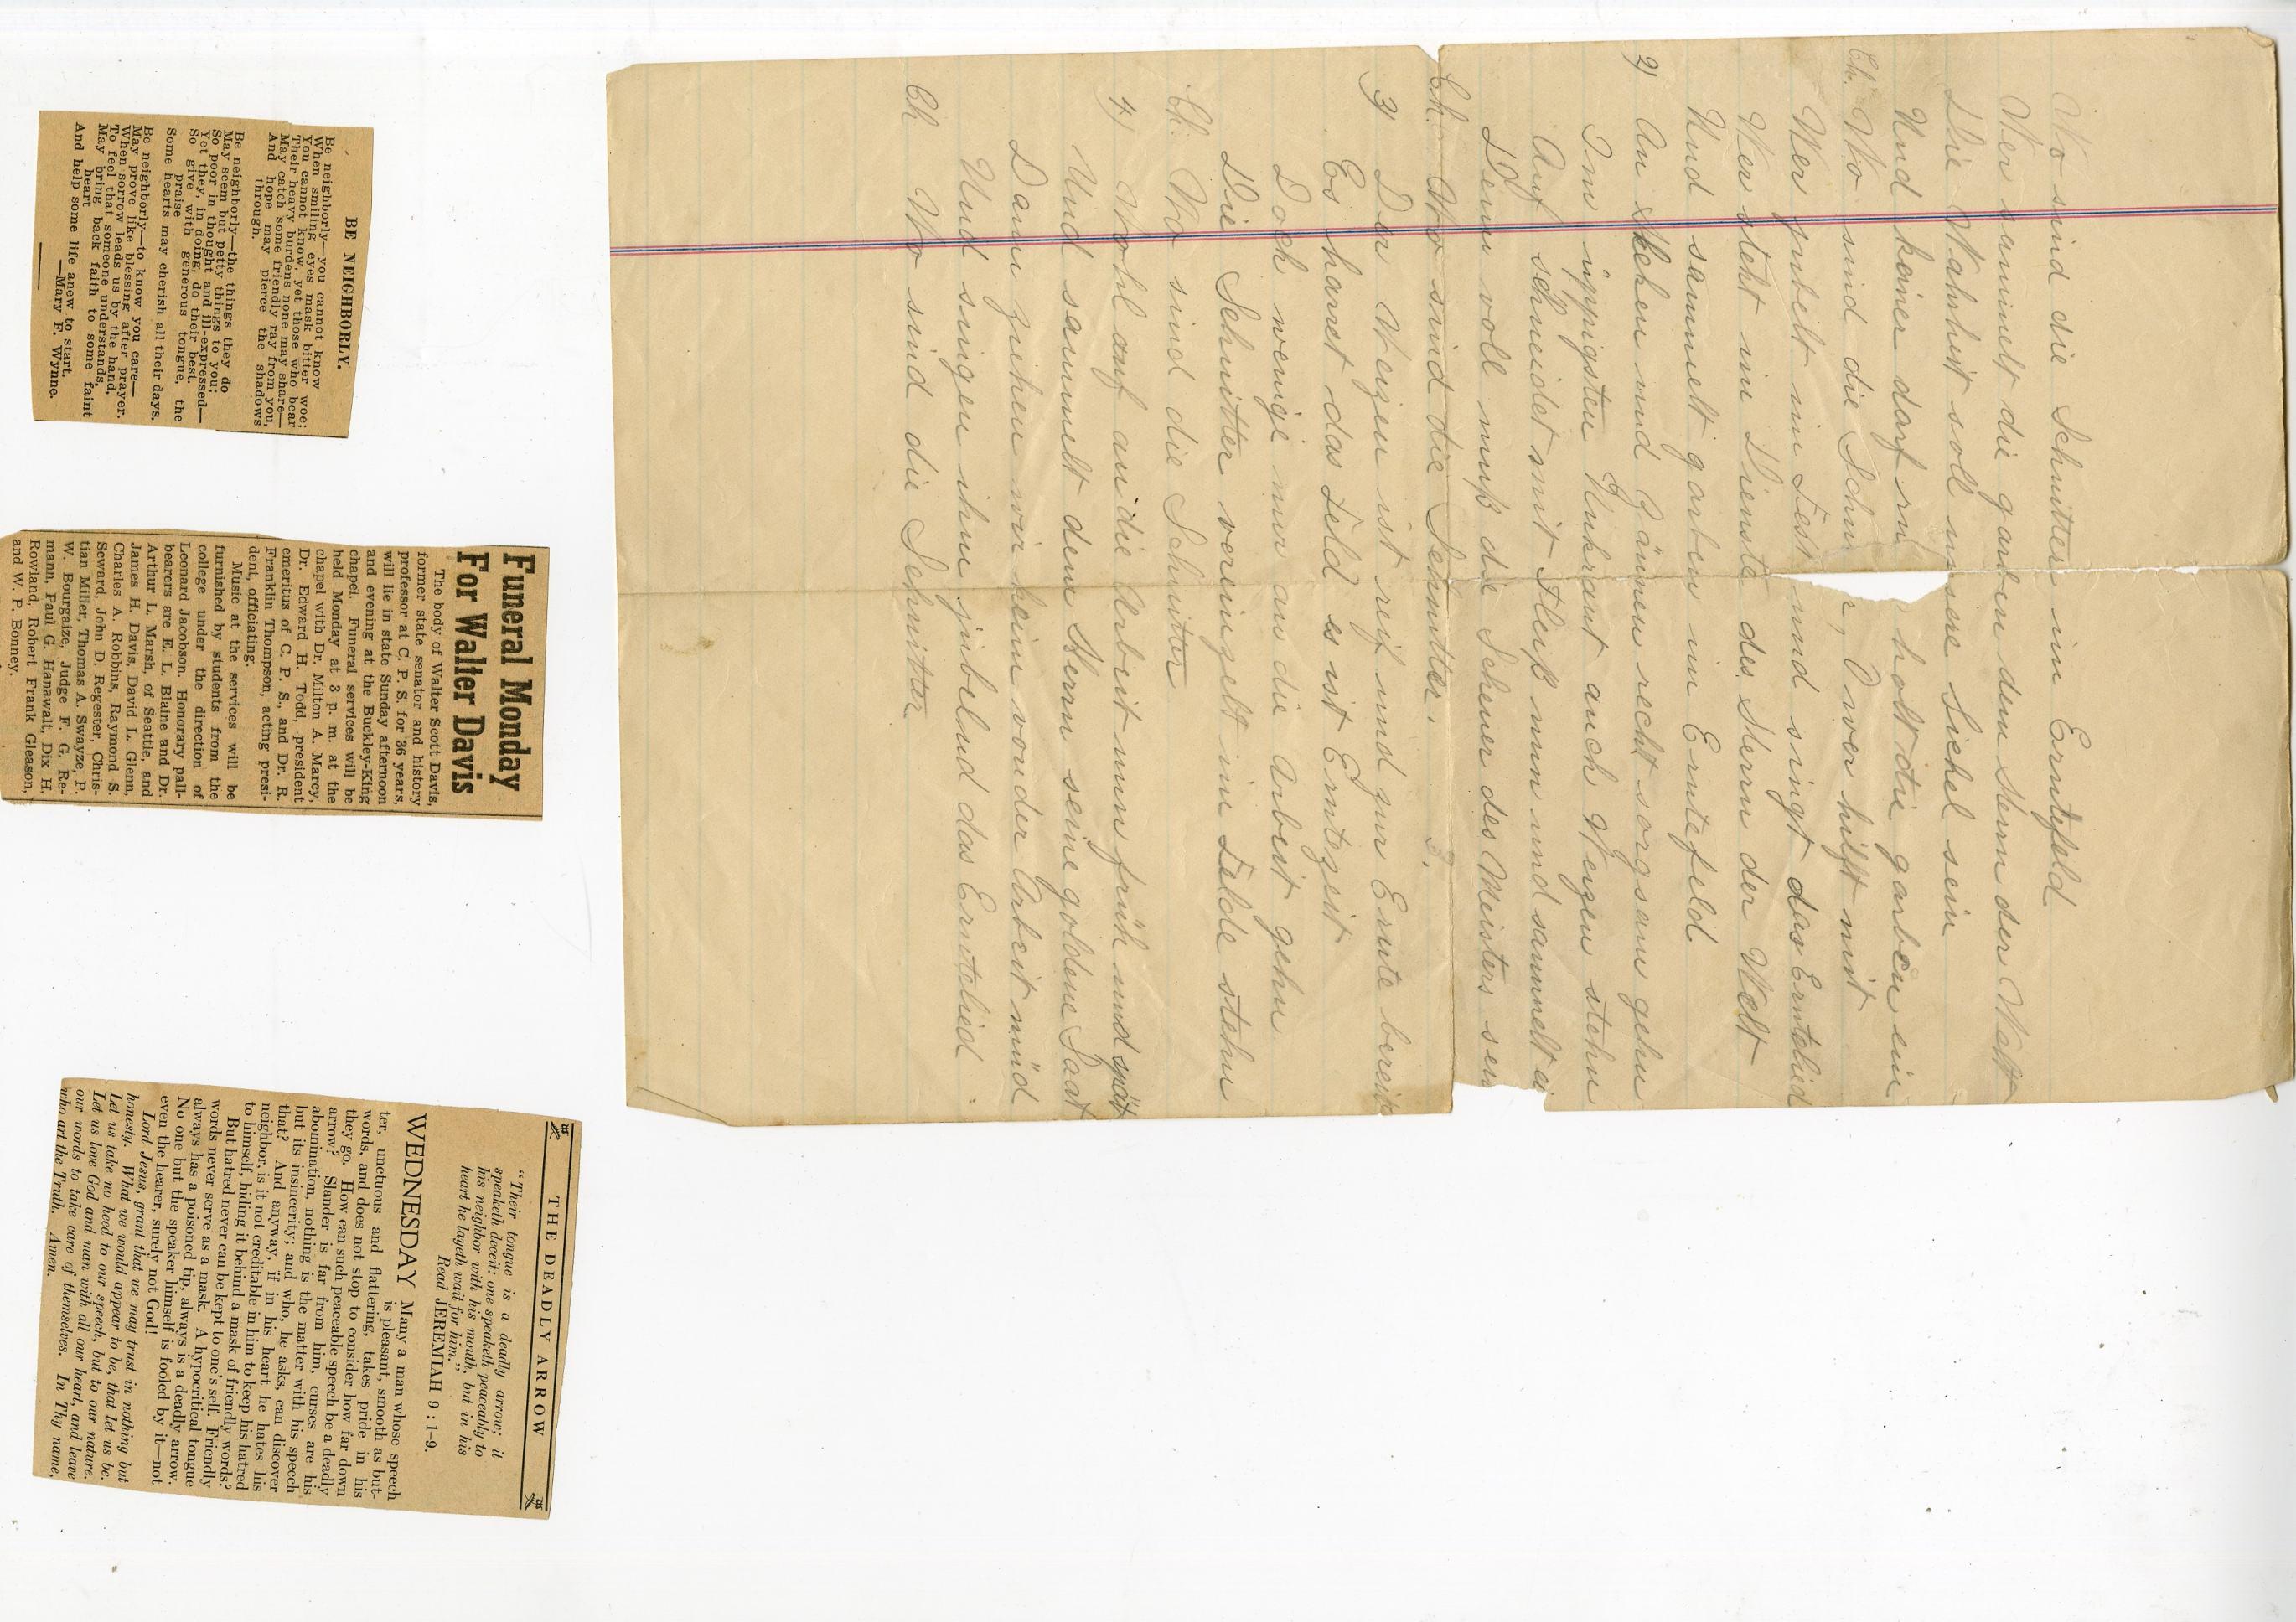 Wo sind die Schnitter im Erntefeld
Wer sammelt die garben dem Herrn der Welt
Die Wahrheit soll unsere Sichel sein
Und keiner darf ruhn holt die garben ein
Ch. Wo sind die Schnitter, O wer hilft mit
Wer jubelt im Fest und singt das Erntelied
Wer steht im Dienste des Herrn der Welt
Und sammelt garben im Erntefeld
2) An Hecken und Zäunen recht sorgsam gehn
Im üppigsten Unkraut auch Weizen stehn
Auf schneidet mit Fleiß nun und sammelt
Denn voll muß die Scheuer des Meisters sein
Ch. Wo sind die Schnitter. 3.
3) Der Weizen ist reif und zur Ernte bereit
Es harret das Feld es ist Erntezeit
Doch wenige nur an die Arbeit gehn
Die Schnitter vereinzelt im Felde stehn
Ch. Wo sind die Schnitter
4) Wohl auf an die Arbeit nun früh und spät
Und sammelt dem Herrn seine goldene Saat
Dann ziehen wir heim von der Arbeit müd
Und singen ihm jubelnd das Erntelied
Ch Wo sind die Schnitter
BE NEIGHBORLY.
Be neighborly—you cannot know
When smiling eyes mask bitter woe;
You cannot know, yet those who bear
Their heavy burdens none may share—
May catch some friendly ray from you,
And hope may pierce the shadows
through.
Be neighborly—the things they do
May seem but petty things to you;
So poor in thought and ill-expressed—
Yet they, in doing, do their best.
So give with generous tongue, the
praise
Some hearts may cherish all their days.
Be neighborly—to know you care—
May prove like blessing after prayer.
When sorrow leads us by the hand,
To feel that someone understands,
May bring back faith to some faint
heart
And help some life anew to start.
—Mary F. Wynne.
Funeral Monday
For Walter Davis
The body of Walter Scott Davis,
former state senator and history
professor at C. P. S. for 36 years,
will lie in state Sunday afternoon
and evening at the Buckley-King
chapel. Funeral services will be
held Monday at 3 p. m. at the
chapel with Dr. Milton A. Marcy,
Dr. Edward H. Todd, president
emeritus of C. P. S., and Dr. R.
Franklin Thompson, acting presi-
dent, officiating.
Music at the services will be
furnished by students from the
college under the direction of
Leonard Jacobson. Honorary pall-
bearers are E. L. Blaine and Dr.
Arthur L. Marsh, of Seattle, and
James H. Davis, David L. Glenn,
Charles A. Robbins, Raymond S.
Seward, John D. Regester, Chris-
tian Miller, Thomas A. Swayze, P.
W. Bourgaize, Judge F. G. Re-
mann, Paul G. Hanawalt, Dix H.
Rowland, Robert Frank Gleason,
and W. P. Bonney.
THE DEADLY ARROW
"Their tongue is a deadly arrow; it
speaketh deceit: one speaketh peaceably to
his neighbor with his mouth, but in his
heart he layeth wait for him."
Read JEREMIAH 9 : 1-9.
WEDNESDAY Many a man whose speech
is pleasant, smooth as but-
ter, unctuous and flattering, takes pride in his
words, and does not stop to consider how far down
they go. How can such peaceable speech be a deadly
arrow? Slander is far from him, curses are his
abomination, nothing is the matter with his speech
but its insincerity; and who, he asks, can discover
that? And anyway, if in his heart he hates his
neighbor, is it not creditable in him to keep his hatred
to himself, hiding it behind a mask of friendly words?
But hatred never can be kept to one's self. Friendly
words never serve as a mask. A hypocritical tongue
always has a poisoned tip, always is a deadly arrow.
No one but the speaker himself is fooled by it—not
even the hearer, surely not God!
Lord Jesus, grant that we may trust in nothing but
honesty. What we would appear to be, that let us be.
Let us take no heed to our speech, but to our nature.
Let us love God and man with all our heart, and leave
our words to take care of themselves. In Thy name,
who art the Truth. Amen.